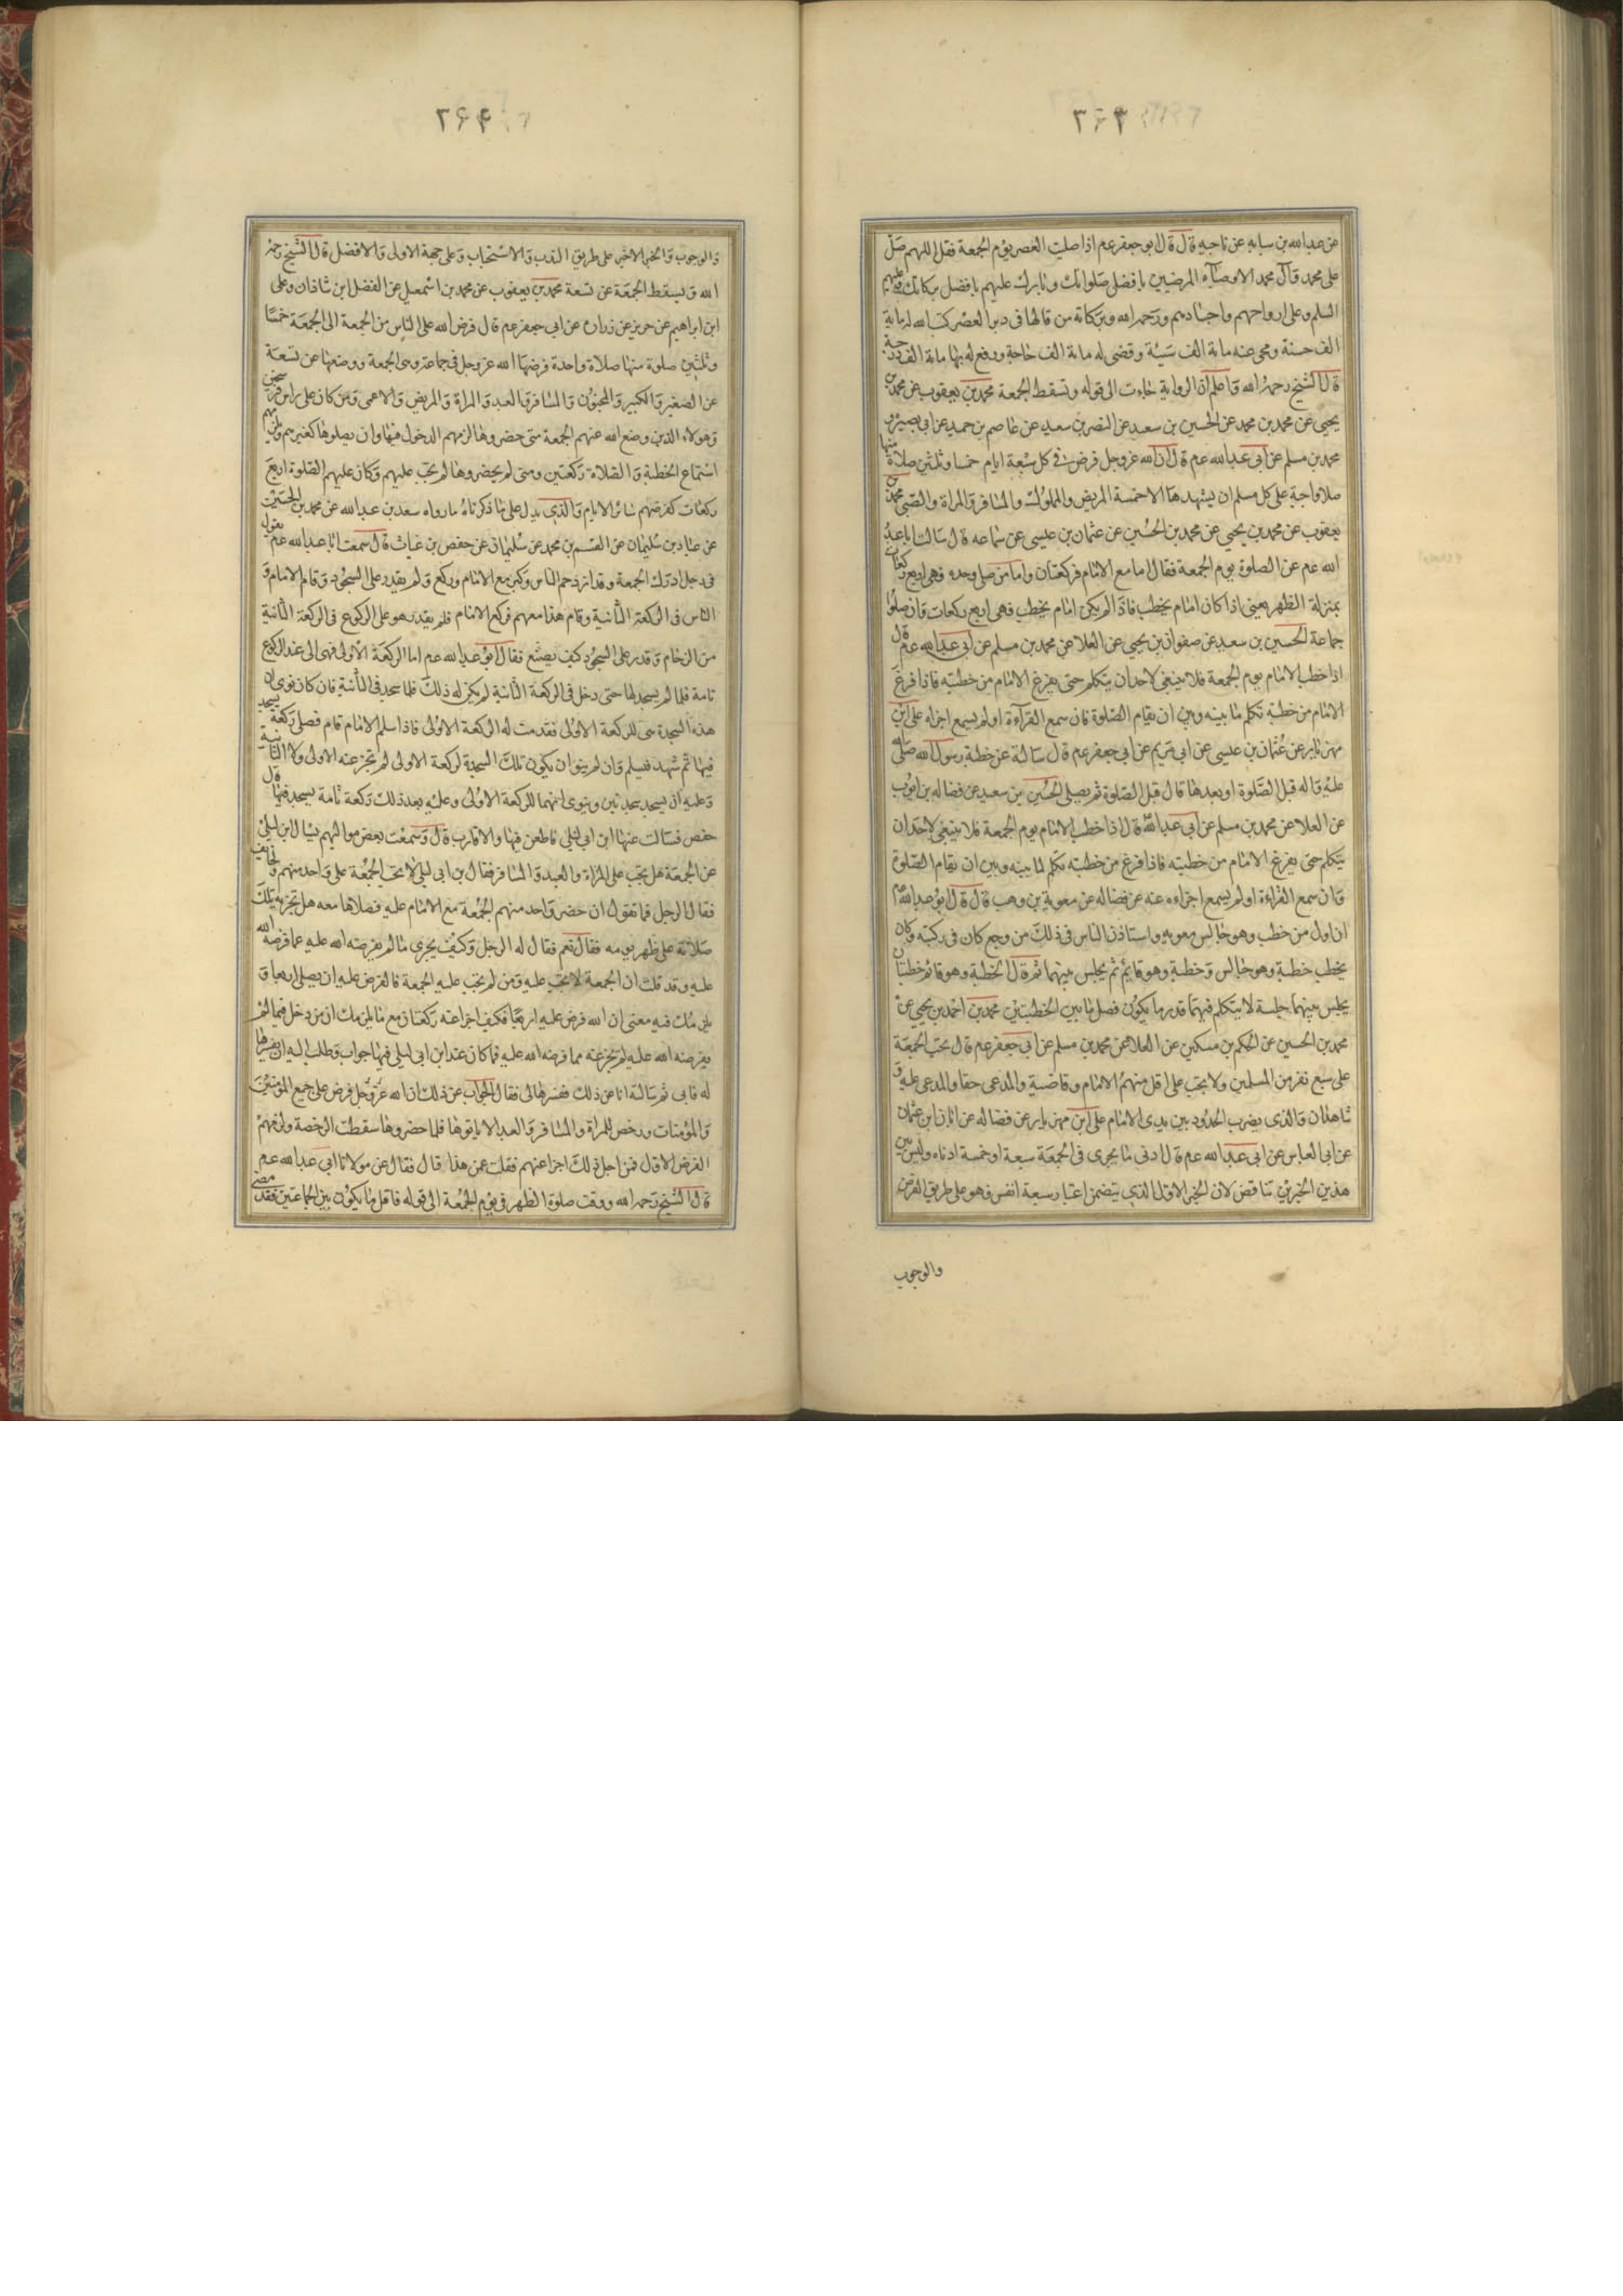 ٣٤٣
عن عبدالله بن سيابه عن ناجيه قال قال ابو جعفر عم اذا صليت العصر يوم الجمعة فقل اللهم صل
على محمد وآل محمد الاوصيآء المرضيين بافضل صلواتك وبارك عليهم بافضل بركاتك وعليهم
السلم وعلى ارواحهم واجسادهم ورحمة الله وبركاته من قالها في دبر العصر كتب الله له ماية
الف حسنة ومحى عنه ماية الف سيئة وقضى له ماية الف حاجة ورفع له بها ماية الف درجة
قال الشيخ رحمه الله واعلم ان الرواية جاءت الى قوله وتسقط الجمعة محمد بن يعقوب عن محمد بن
يحيى عن محمد بن محمد عن الحسين بن سعيد عن النضر بن سعيد عن عاصم بن حميد عن ابي بصير و
محمد بن مسلم عن ابي عبدالله عم قال ان الله عز وجل فرض في كل سبعة ايام خمسا وثلثين صلاة منها
صلاة واجبة على كل مسلم ان يشهدها الا خمسة المريض والمملوك والمسافر والمراة والصبي محمد بن
يعقوب عن محمد بن يحيى عن محمد بن الحسين عن عثمان بن عيسى عن سماعه قال سالت ابا عبد
الله عم عن الصلوة يوم الجمعة فقال اما مع الامام فركعتان واما من صلى وحده فهى اربع ركعات
بمنزلة الظهر يعني اذا كان امام يخطب فاذا لم يكن امام يخطب فهى اربع ركعات وان صلوا
جماعة الحسين بن سعيد عن صفوان بن يحيى عن العلا عن محمد بن مسلم عن ابي عبدالله عم قال
اذا خطب الامام يوم الجمعة فلا ينبغي لاحد ان يتكلم حتى يفرغ الامام من خطبته فاذا فرغ
الامام من خطبته تكلم ما بينه وبين ان يقام الصلوة فان سمع القرآءة او لم يسمع اجزاه على بن
مهزيار عن عثمان بن عيسى عن ابي مريم عن ابي جعفر عم قال سالته عن خطبة رسول الله صلى الله
عليه وآله قبل الصلوة او بعدها قال قبل الصلوة ثم يصلي الحسين بن سعيد عن فضاله بن ايوب
عن العلا عن محمد بن مسلم عن ابي عبدالله قال اذا خطب الامام يوم الجمعة فلا ينبغي لاحد ان
يتكلم حتى يفرغ الامام من خطبته فاذا فرغ من خطبته تكلم ما بينه وبين ان يقام الصلوة
وان سمع القراءة او لم يسمع اجزاءه عنه عن فضاله عن معوية بن وهب قال قال ابو عبدالله
ان اول من خطب وهو جالس معويه واستاذن الناس في ذلك من وجع كان في ركبته وكان
يخطب خطبة وهو جالس وخطبة وهو قايم ثم يجلس بينهما ثم قال الخطبة وهو قائم خطبتان
يجلس بينهما جلسة لا يتكلم فيها قدر ما يكون فصل ما بين الخطبتين محمد بن احمد بن يحيى عن
محمد بن الحسين عن الحكم بن مسكين عن العلا عن محمد بن مسلم عن ابي جعفر عم قال تجب الجمعة
على سبع نفر من المسلمين ولا تجب على اقل منهم الامام وقاضيه والمدعى حقا والمدعى عليه و
شاهدان والذي يضرب الحدود بين يدي الامام على ابن مهزيار عن فضاله عن ابان ابن عثمان
عن ابي العباس عن ابي عبدالله عم قال ادنى ما يجزى في الجمعة سبعة او خمسة ادناه وليس بين
هذين الخبرين تناقض لان الخبر الاول الذي يتضمن اعتبار سبعة انفس فهو على طريق الفرض
والوجوب
٣٤٤
والوجوب والخبر الاخير على طريق الندب والاستحباب وعلى جهة الاولى والافضل قال الشيخ رحمه
الله ويسقط الجمعة عن تسعة محمد بن يعقوب عن محمد بن اسمعيل عن الفضل ابن شاذان وعلى
ابن ابراهيم عن حريز عن زرارة عن ابي جعفر عم قال فرض الله على الناس من الجمعة الى الجمعة خمسا
وثلثين صلوة منها صلاة واحدة فرضها الله عز وجل في جماعة وهى الجمعة ووضعها عن تسعة
عن الصغير والكبير والمجنون والمسافر والعبد والمراة والمريض والاعمى ومن كان على راس فرسخين
وهولاء الذين وضع الله عنهم الجمعة متى حضروها لزمهم الدخول فيها وان يصلوها كغيرهم ويلزمهم
استماع الخطبة والصلاة ركعتين ومتى لم يحضروها لم تجب عليهم وكان عليهم الصلوة اربع
ركعات كفرضهم سائر الايام والذي يدل على ما ذكرناه ما رواه سعد بن عبدالله عن محمد بن الحسين
عن عباد بن سليمان عن القسم بن محمد عن سليمان عن حفص بن غياث قال سمعت ابا عبدالله عم يقول
في رجل ادرك الجمعة وقد ازدحم الناس وكبر مع الامام وركع ولم يقدر على السجود وقام الامام و
الناس في الركعة الثانية وقام هذا معهم فركع الامام فلم يقدر هو على الركوع في الركعة الثانية
من الزحام وقدر على السجود كيف يصنع فقال ابو عبدالله عم اما الركعة الاولى فهى الى عند الركوع
تامة فلما لم يسجد لها حتى دخل في الركعة الثانية لم يكن له ذلك فلما سجد في الثانية فان كان نوى ان
هذه السجدة هى للركعة الاولى فقد تمت له الركعة الاولى فاذا سلم الامام قام فصلى ركعة يسجد
فيها ثم تشهد فيسلم وان لم ينو ان يكون تلك السجدة لركعة الاولى لم تجز عنه الاولى ولا الثانية
وعليه ان يسجد سجدتين وينوى انهما للركعة الاولى وعليه بعد ذلك ركعة تامة يسجد فيها قال
حفص فسالت عنها ابن ابي ليلى فاطعن فيها ولا قارب قال وسمعت بعض مواليهم يسال ابن ليلى
عن الجمعة هل تجب على المراة والعبد والمسافر فقال بن ابي ليلى لا تجب الجمعة على واحد منهم ولا الخايف
فقال الرجل فما تقول ان حضر واحد منهم الجمعة مع الامام عليه فصلاها معه هل تجزيه تلك
صلاته على ظهر يومه فقال نعم فقال له الرجل وكيف يجزي ما لم يفرضه الله عليه عما فرضه الله
عليه وقد قلت ان الجمعة لا تجب عليه ومن لم تجب عليه الجمعة فالفرض عليه ان يصلى اربعا و
يلزمك فيه معنى ان الله فرض عليه اربعا فكيف اجزا عنه ركعتان مع ما يلزمك ان من دخل فيما لم
يفرضه الله عليه لم يجز عنه مما فرضه الله عليه فما كان عند ابن ابي ليلى فيها جواب وطلب اليه ان يفسرها
له فابى ثم سالته انا عن ذلك ففسرها لي فقال الجواب عن ذلك ان الله عز وجل فرض على جميع المؤمنين
والمؤمنات ورخص للمراة والمسافر والعبد الا ياتوها فلما حضروها سقطت الرخصة ولزمهم
الفرض الاول فمن اجل ذلك اجزا عنهم فقلت عن هذا قال فقال عن مولانا ابي عبدالله عم
قال الشيخ رحمه الله ووقت صلوة الظهر في يوم الجمعة الى قوله فاقل ما يكون بين الجماعتين فقد مضى